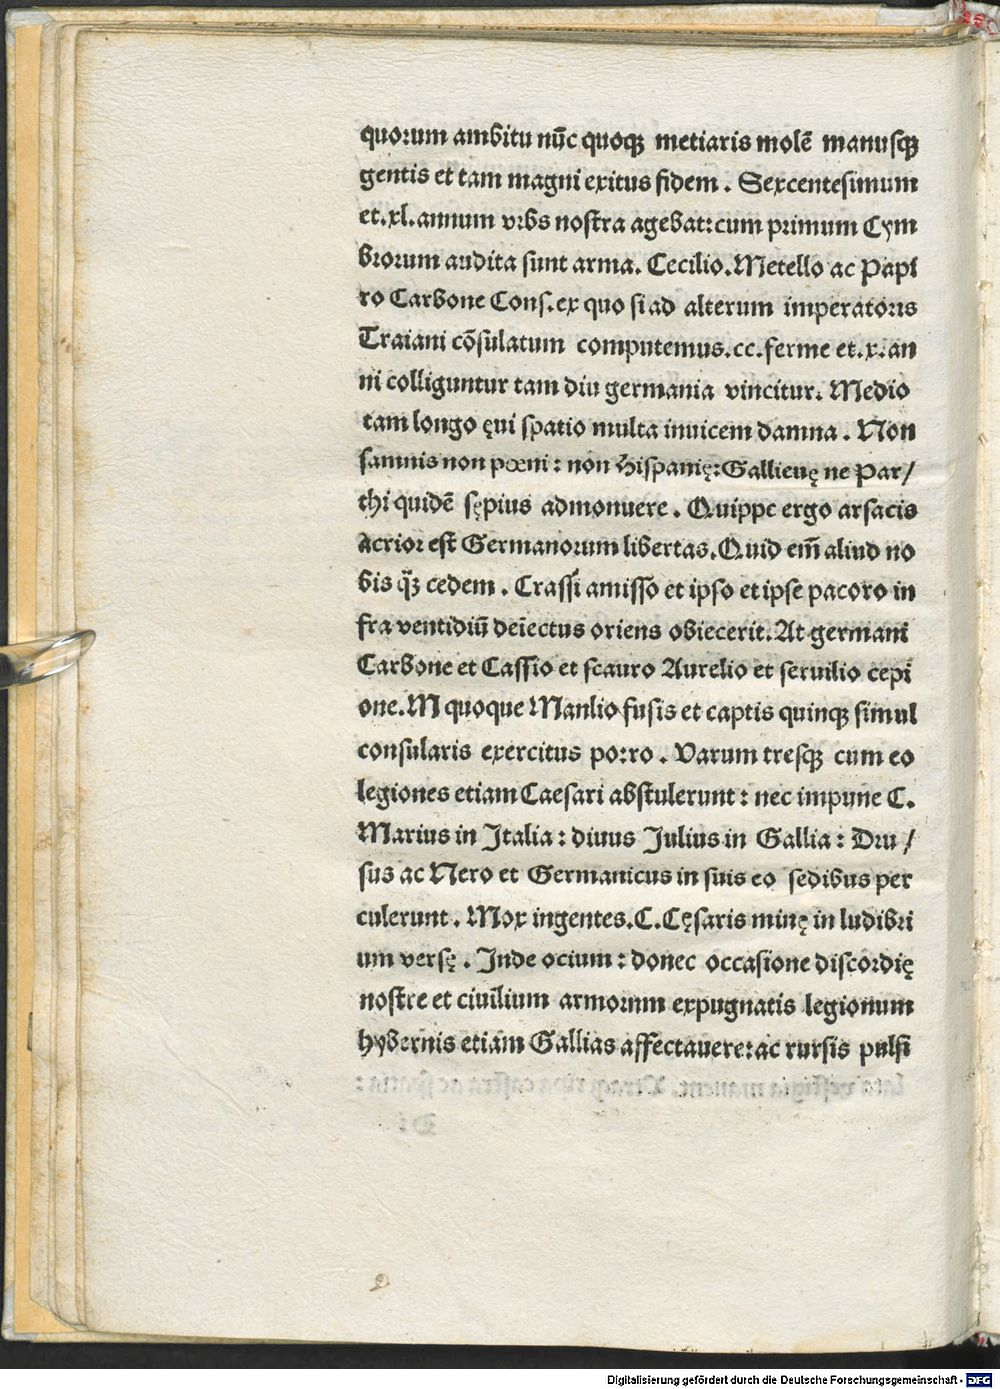 quorum ambitu nūc quoqꝫ metiaris molē manusqꝫ
gentis et tam magni exitus fidem. Sexcentesimum
et.xl.annum vrbs nostra agebat:cum primum Cym
brorum audita sunt arma. Cecilio.Metello ac Papi
ro Carbone Cons.ex quo si ad alterum imperatoris
Traiani cōsulatum computemus.cc.ferme et.x.an
ni colliguntur tam diu germania vincitur. Medio
tam longo ęui spatio multa inuicem damna. Non
samnis non pœni: non Hispanię:Gallieuę ne Par/
thi quidē sępius admonuere. Quippe ergo arsacis
acrior est Germanorum libertas.Quid em̄ aliud no
bis q̄ꝫ cedem. Crassi amisso et ipso et ipse pacoro in
fra ventidiū deiectus oriens obiecerit.At germani
Carbone et Cassio et scauro Aurelio et seruilio cepi
one.M quoque Manlio fusis et captis quinqꝫ simul
consularis exercitus po:ro. Varum tresqꝫ cum eo
legiones etiam Caesari abstulerunt: nec impune C.
Marius in Italia: diuus Julius in Gallia: Dru/
sus ac Nero et Germanicus in suis eo sedibus per
culerunt. Mox ingentes.C.Cęsaris minę in ludibri
um versę. Inde ocium: donec occasione discordię
nostre et ciuilium armorum expugnatis legionum
hybernis etiam Gallias affectauere:ac rursis pulsi
Digitalisierung gefördert durch die Deutsche Forschungsgemeinschaft - DFG